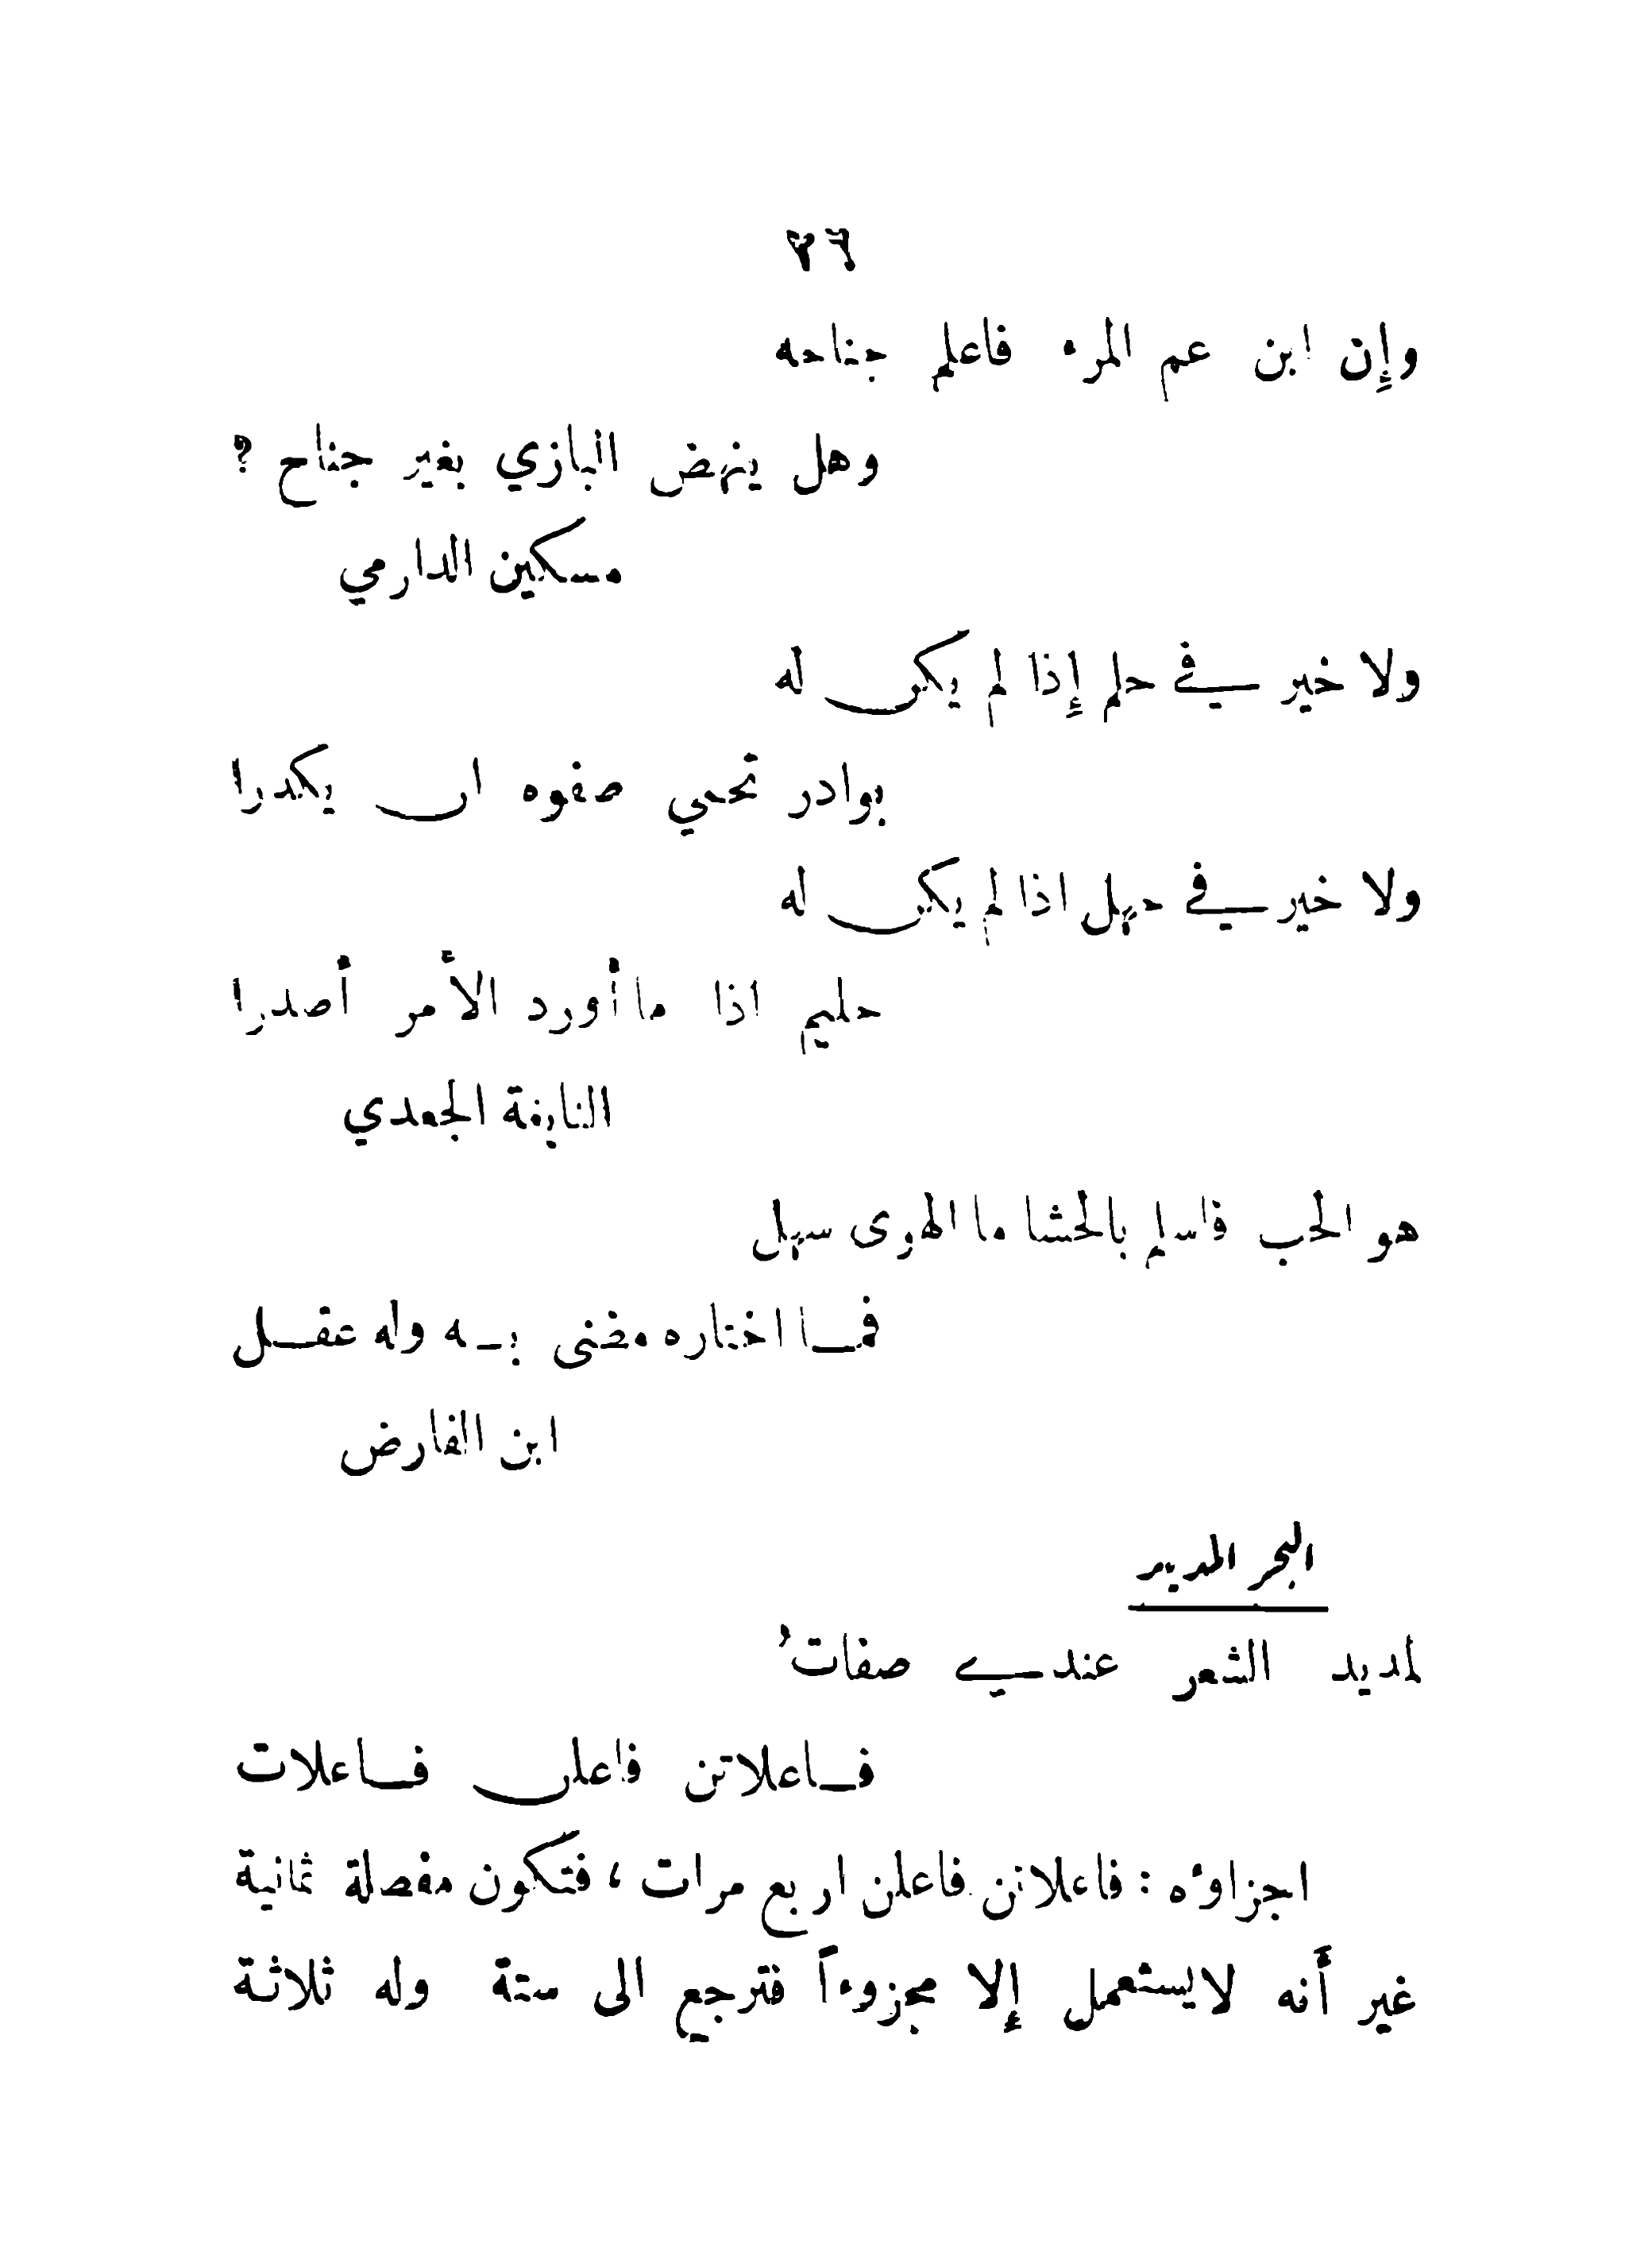 ٢٦
وإِن ابن عم المرء فاعلم جناحه
وهل ينهض البازي بغير جناح ?
مسكين الدارمي
ولا خير في حلم إِذا لم يكن له
بوادر تحمي صفوه ان يكدرا
ولا خير في جهل اذا لم يكن له
حليم اذا ما أورد الأمر أصدرا
النابغة الجعدي
هو الحب فاسلم بالحشا ما الهوى سهل
فما اختاره مضنى به وله عقل
ابن الفارض
البحر المديد
لمديد الشعر عندي صفاتُ
فاعلاتن فاعلن فاعلات
اجزاؤه : فاعلاتن فاعلن اربع مرات ، فتكون مفصلة ثمانية
غير أنه لايستعمل إِلا مجزوءاً فترجع الى ستة وله ثلاثة